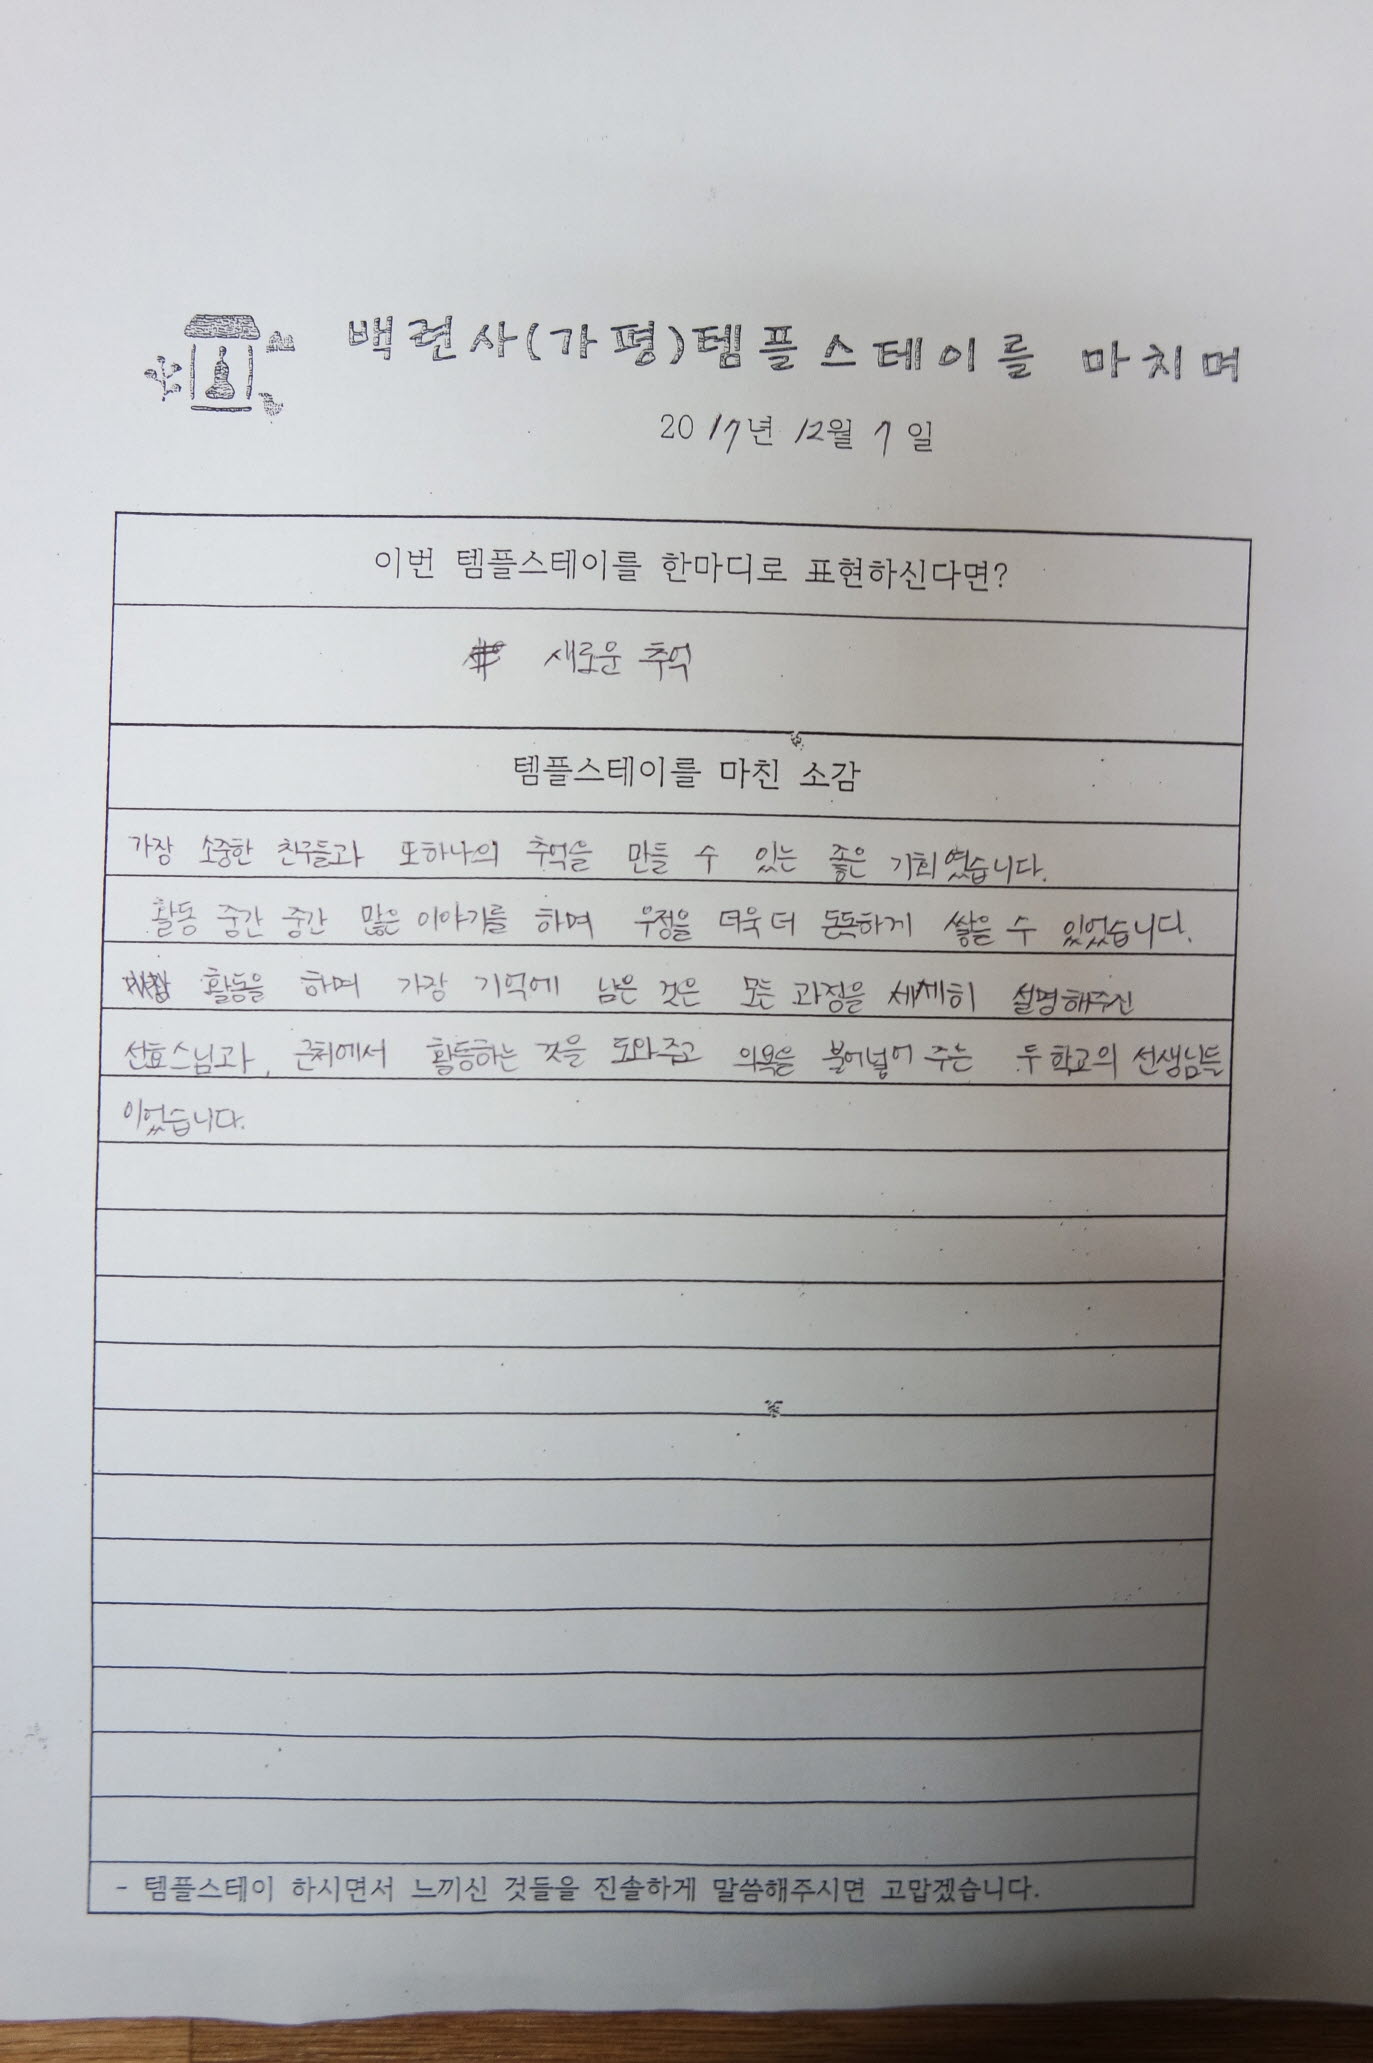 백련사(가평)템플스테이를 마치며
2017년 12월 7일
이번 템플스테이를 한마디로 표현하신다면?
새로운 추억
템플스테이를 마친 소감
가장 소중한 친구들과 또하나의 추억을 만들 수 있는 좋은 기회였습니다.
활동 중간 중간 많은 이야기를 하며 우정을 더욱 더 돈독하게 쌓을 수 있었습니다.
활동을 하며 가장 기억에 남은 것은 모든 과정을 세세히 설명해주신
선효스님과, 근처에서 활동하는 것을 도와주고 의욕을 불어넣어 주는 두 학교의 선생님들
이었습니다.
- 템플스테이 하시면서 느끼신 것들을 진솔하게 말씀해주시면 고맙겠습니다.